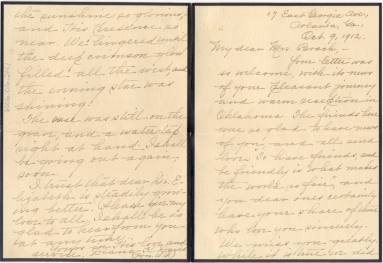 17 East Georgia Ave,
Atlanta, Ga.
Oct. 9, 1912.
My dear Mrs.
Your letter was
so welcome, with its news
of your pleasant journey
and warm reception in
Oklahoma. The friends here
are so glad to have news
of you, and all send
love. To have friends and
be friendly is what makes
the world so fair, and
you dear ones certainly
have your share of those
who love you sincerely.
We miss you greatly,
while it is
the sunshine so glorious,
and His Presence so
near. We lingered until
the deep crimson glow
filled all the west, and
the evening star was
shining!
The was still on the
grass, and a water tap
right at hand. I shall
be going out again,
soon.
I trust that dear Mrs. E-
lizabeth is steadily grow-
ing better. Please give my
love to all. I shall be so
glad to hear from you
at any time.
Yours in His love and
service,